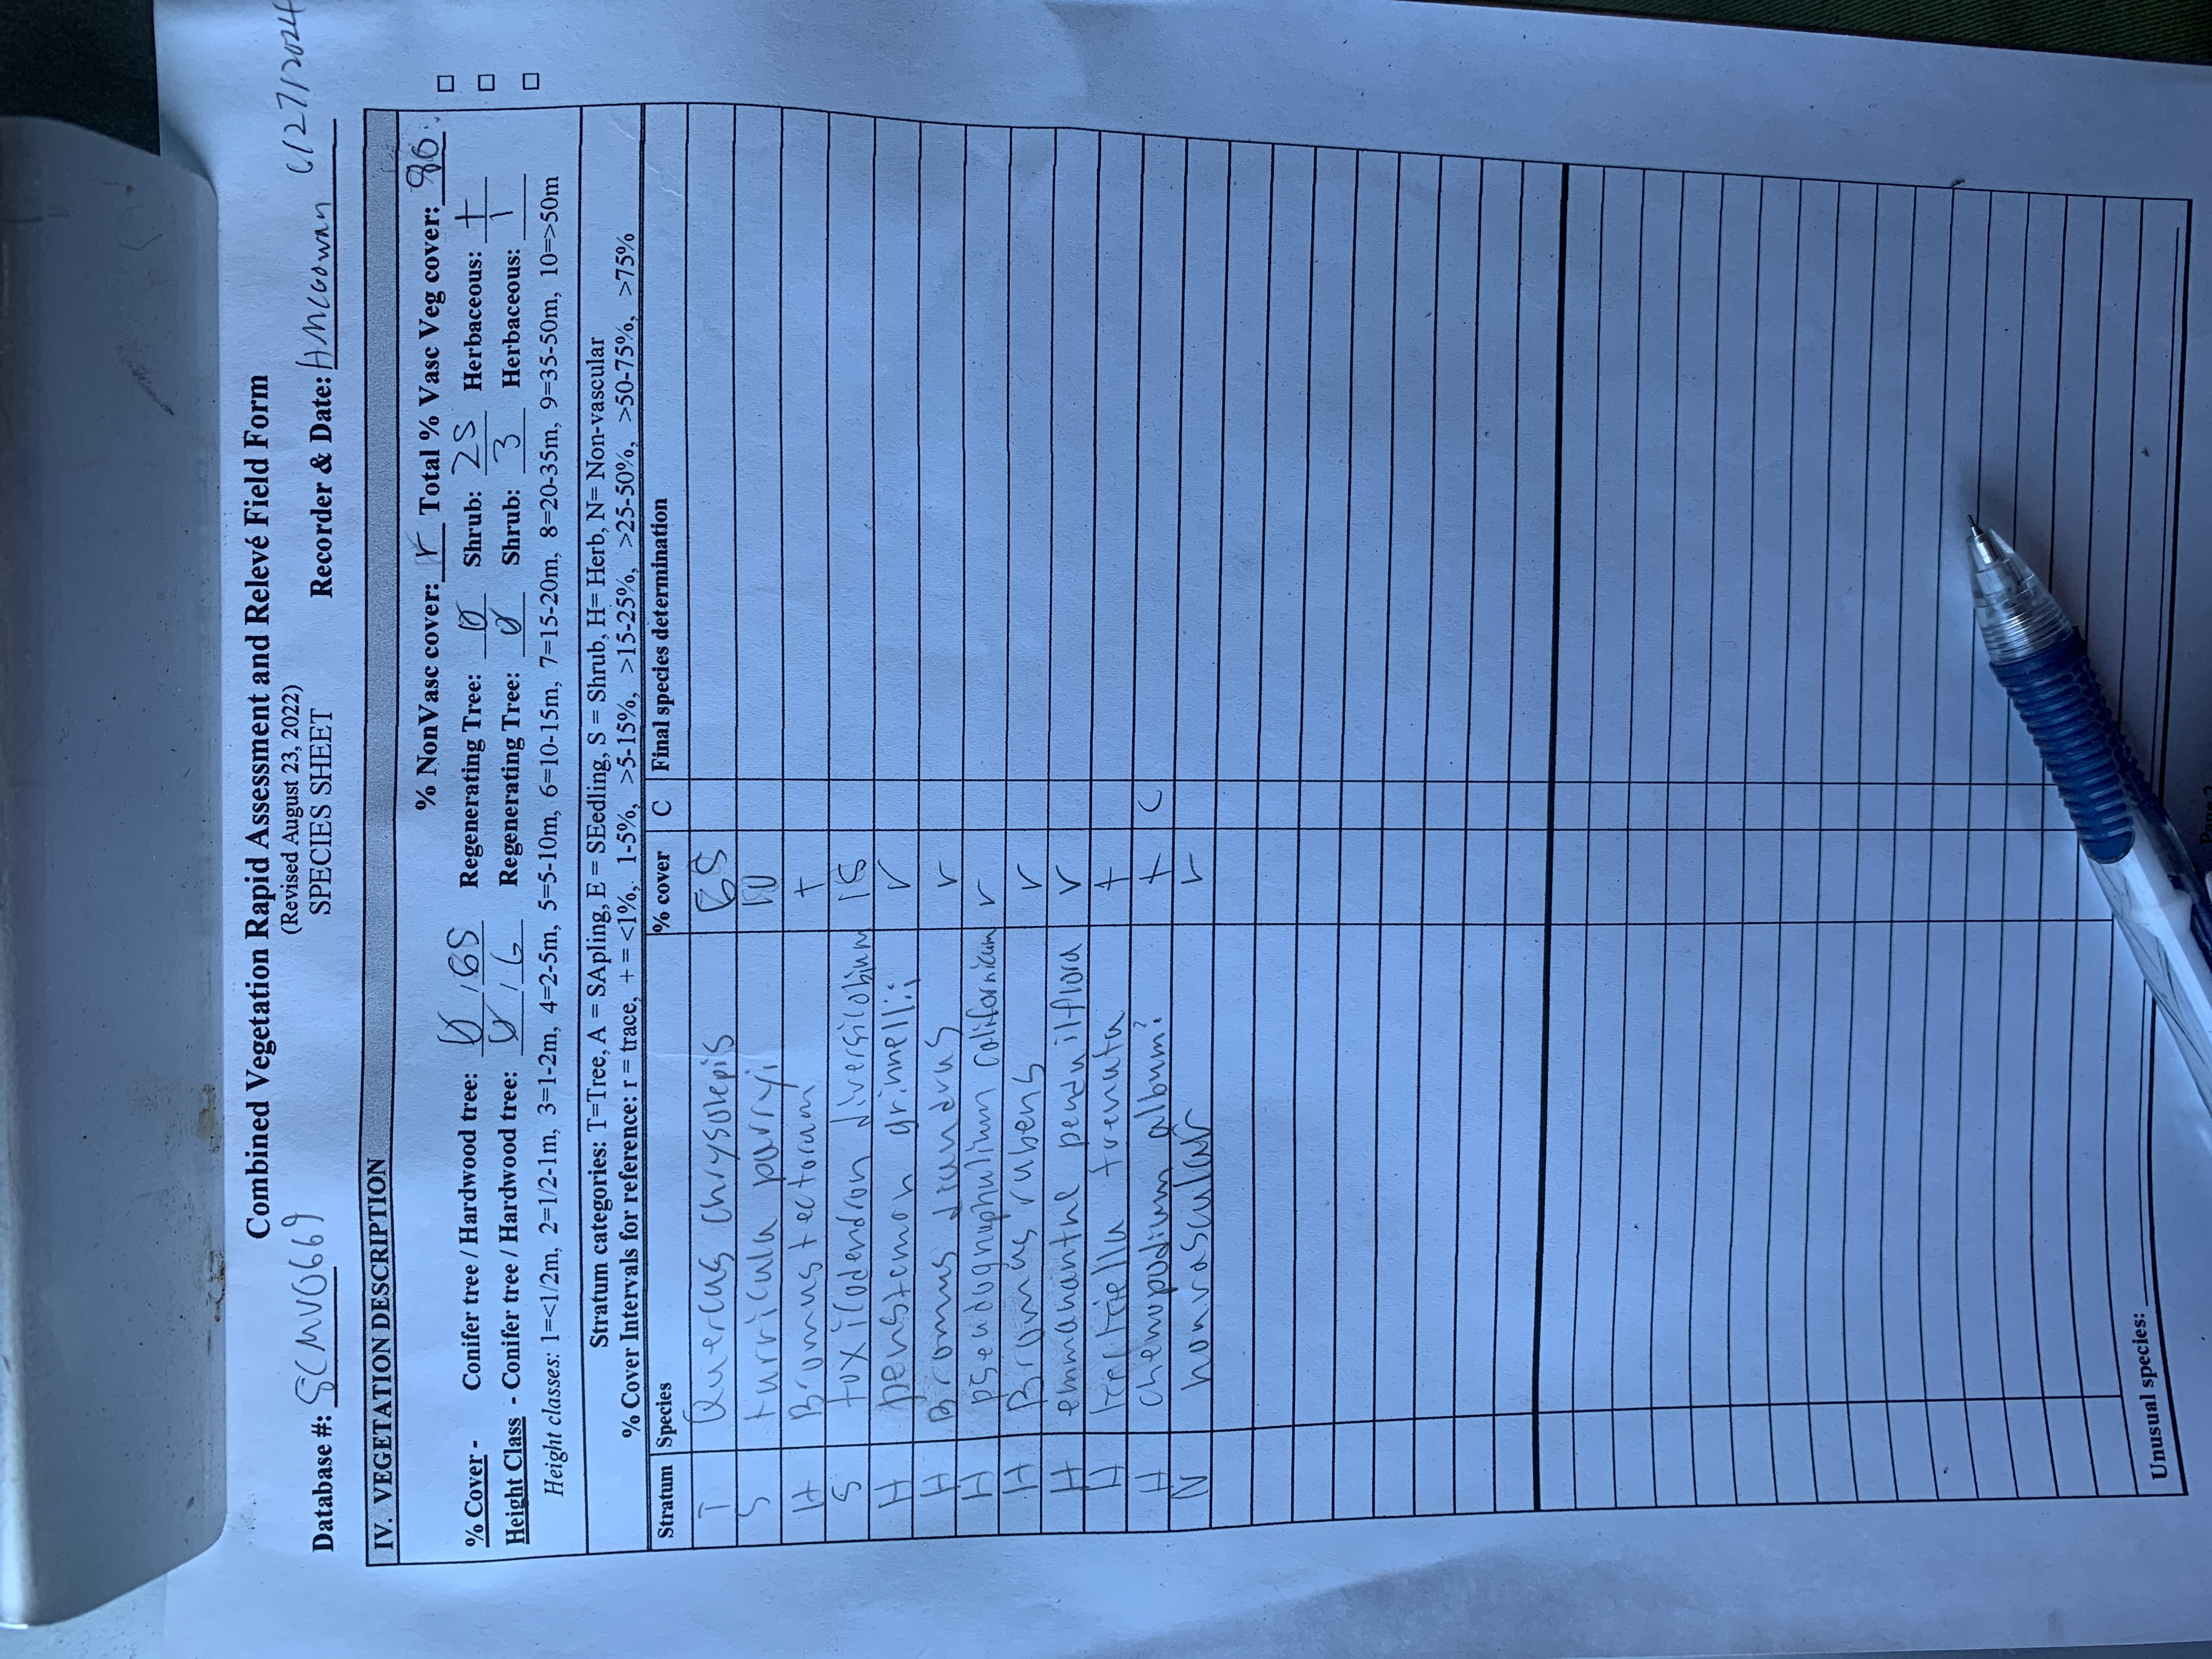 Combined Vegetation Rapid Assessment and Relevé Field Form
(Revised August 23, 2022)
SPECIES SHEET
Database #: SCMV0669 Recorder & Date: AMCGowan 6/27/2024
IV. VEGETATION DESCRIPTION
% NonVasc cover: r Total % Vasc Veg cover:
% Cover - Conifer tree / Hardwood tree: Ø / 65 Regenerating Tree: Ø Shrub: 25 Herbaceous: +
Height Class - Conifer tree / Hardwood tree: Ø / 6 Regenerating Tree: Ø Shrub: 3 Herbaceous: 1
Height classes: 1=<1/2m, 2=1/2-1m, 3=1-2m, 4=2-5m, 5=5-10m, 6=10-15m, 7=15-20m, 8=20-35m, 9=35-50m, 10=>50m
Stratum categories: T=Tree, A = SApling, E = SEedling, S = Shrub, H= Herb, N= Non-vascular
% Cover Intervals for reference: r = trace, + = <1%, 1-5%, >5-15%, >15-25%, >25-50%, >50-75%, >75%
Stratum Species % cover C Final species determination
T Quercus chrysolepis 65
S turricula parryi 10
H Bromus tectorum +
S toxicodendron diversilobium 15
H penstemon grinnellii r
H Bromus diandrus r
H pseudognaphalium californicum r
H Bromus rubens r
H emmenanthe penduliflora r
H +
H chenopodium album? + C
N nonvascular r
Unusual species: